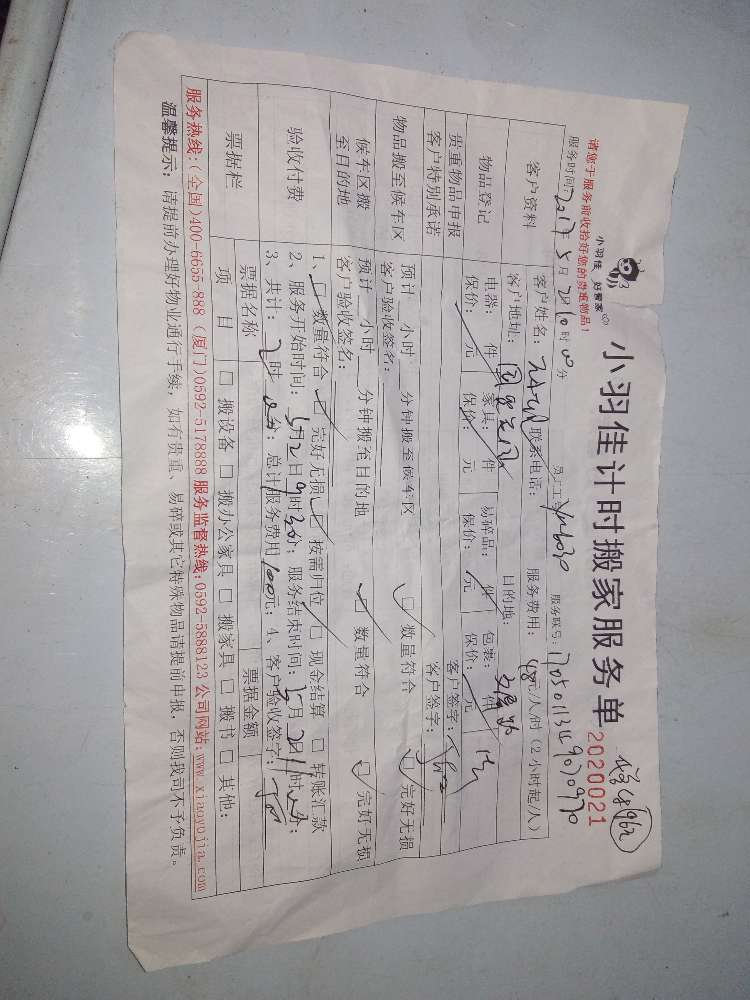 小羽佳 好管家
小羽佳计时搬家服务单
2020021
请您于服务前收拾好您的贵重物品!
服务时间: 2017年5月2日10时00分 员工工 服务账号:
客户资料 客户姓名: 联系电话: 服务费用: 48元/人/时(2小时起/人)
客户地址: 目的地:
物品登记 电器: 件 家具: 件 易碎品: 件 包装: 件
保价: 元 保价: 元 保价: 元 保价: 元
贵重物品申报 客户签字:
客户特别承诺 客户签字:
物品搬至候车区 预计 小时 分钟搬至候车区
客户验收签名: □ 数量符合 □ 完好无损
候车区搬至目的地 预计 小时 分钟搬至目的地
客户验收签名: □ 数量符合 □ 完好无损
验收付费 1、□ 数量符合 □ 完好无损 □ 按需归位 □ 现金结算 □ 转账汇款
2、服务开始时间: 5月2日9时30分; 服务结束时间: 5月2日11时 分;
3、共计: 2时0分; 总计服务费用100元; 4、客户验收签字:
票据栏 票据名称 票据金额
项目 □ 搬设备 □ 搬办公家具 □ 搬家具 □ 搬书 □ 其他:
服务热线:(全国)400-6655-888 (厦门)0592-5178888 服务监督热线:0592-5888123 公司网站:www.xiaoyujia.com
温馨提示: 请提前办理好物业通行手续, 如有贵重、易碎或其它特殊物品请提前申报, 否则我司不予负责。